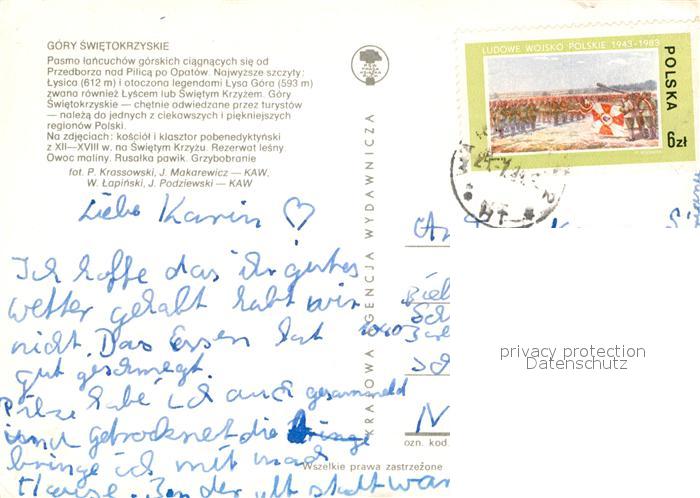 GÓRY ŚWIĘTOKRZYSKIE
Pasmo łańcuchów górskich ciągnących się od
Przedborza nad Pilicą po Opatów. Najwyższe szczyty:
Łysica (612 m) i otoczona legendami Łysa Góra (593 m)
zwana również Łyścem lub Świętym Krzyżem. Góry
Świętokrzyskie — chętnie odwiedzane przez turystów
— należą do jednych z ciekawszych i piękniejszych
regionów Polski.
Na zdjęciach: kościół i klasztor pobenedyktyński
z XII—XVIII w. na Świętym Krzyżu. Rezerwat leśny
Owoc maliny. Rusałka pawik. Grzybobranie
fot. P. Krassowski, J. Makarewicz — KAW,
W. Łapiński, J. Podziewski — KAW
Liebe Karin
Ich hoffe das ihr gutes
wetter gehabt habt wir
nicht. Das Essen hat
gut geschmegt.
Pilze habe ich auch gesammeld
und getrocknet die
bringe ich mit nach
Hause. In der alt stadt war
KRAJOWA AGENCJA WYDAWNICZA
LUDOWE WOJSKO POLSKIE 1943-1983
POLSKA
6zł
Biel
Sch
N
ozn. kod.
Wszelkie prawa zastrzeżone
privacy protection
Datenschutz